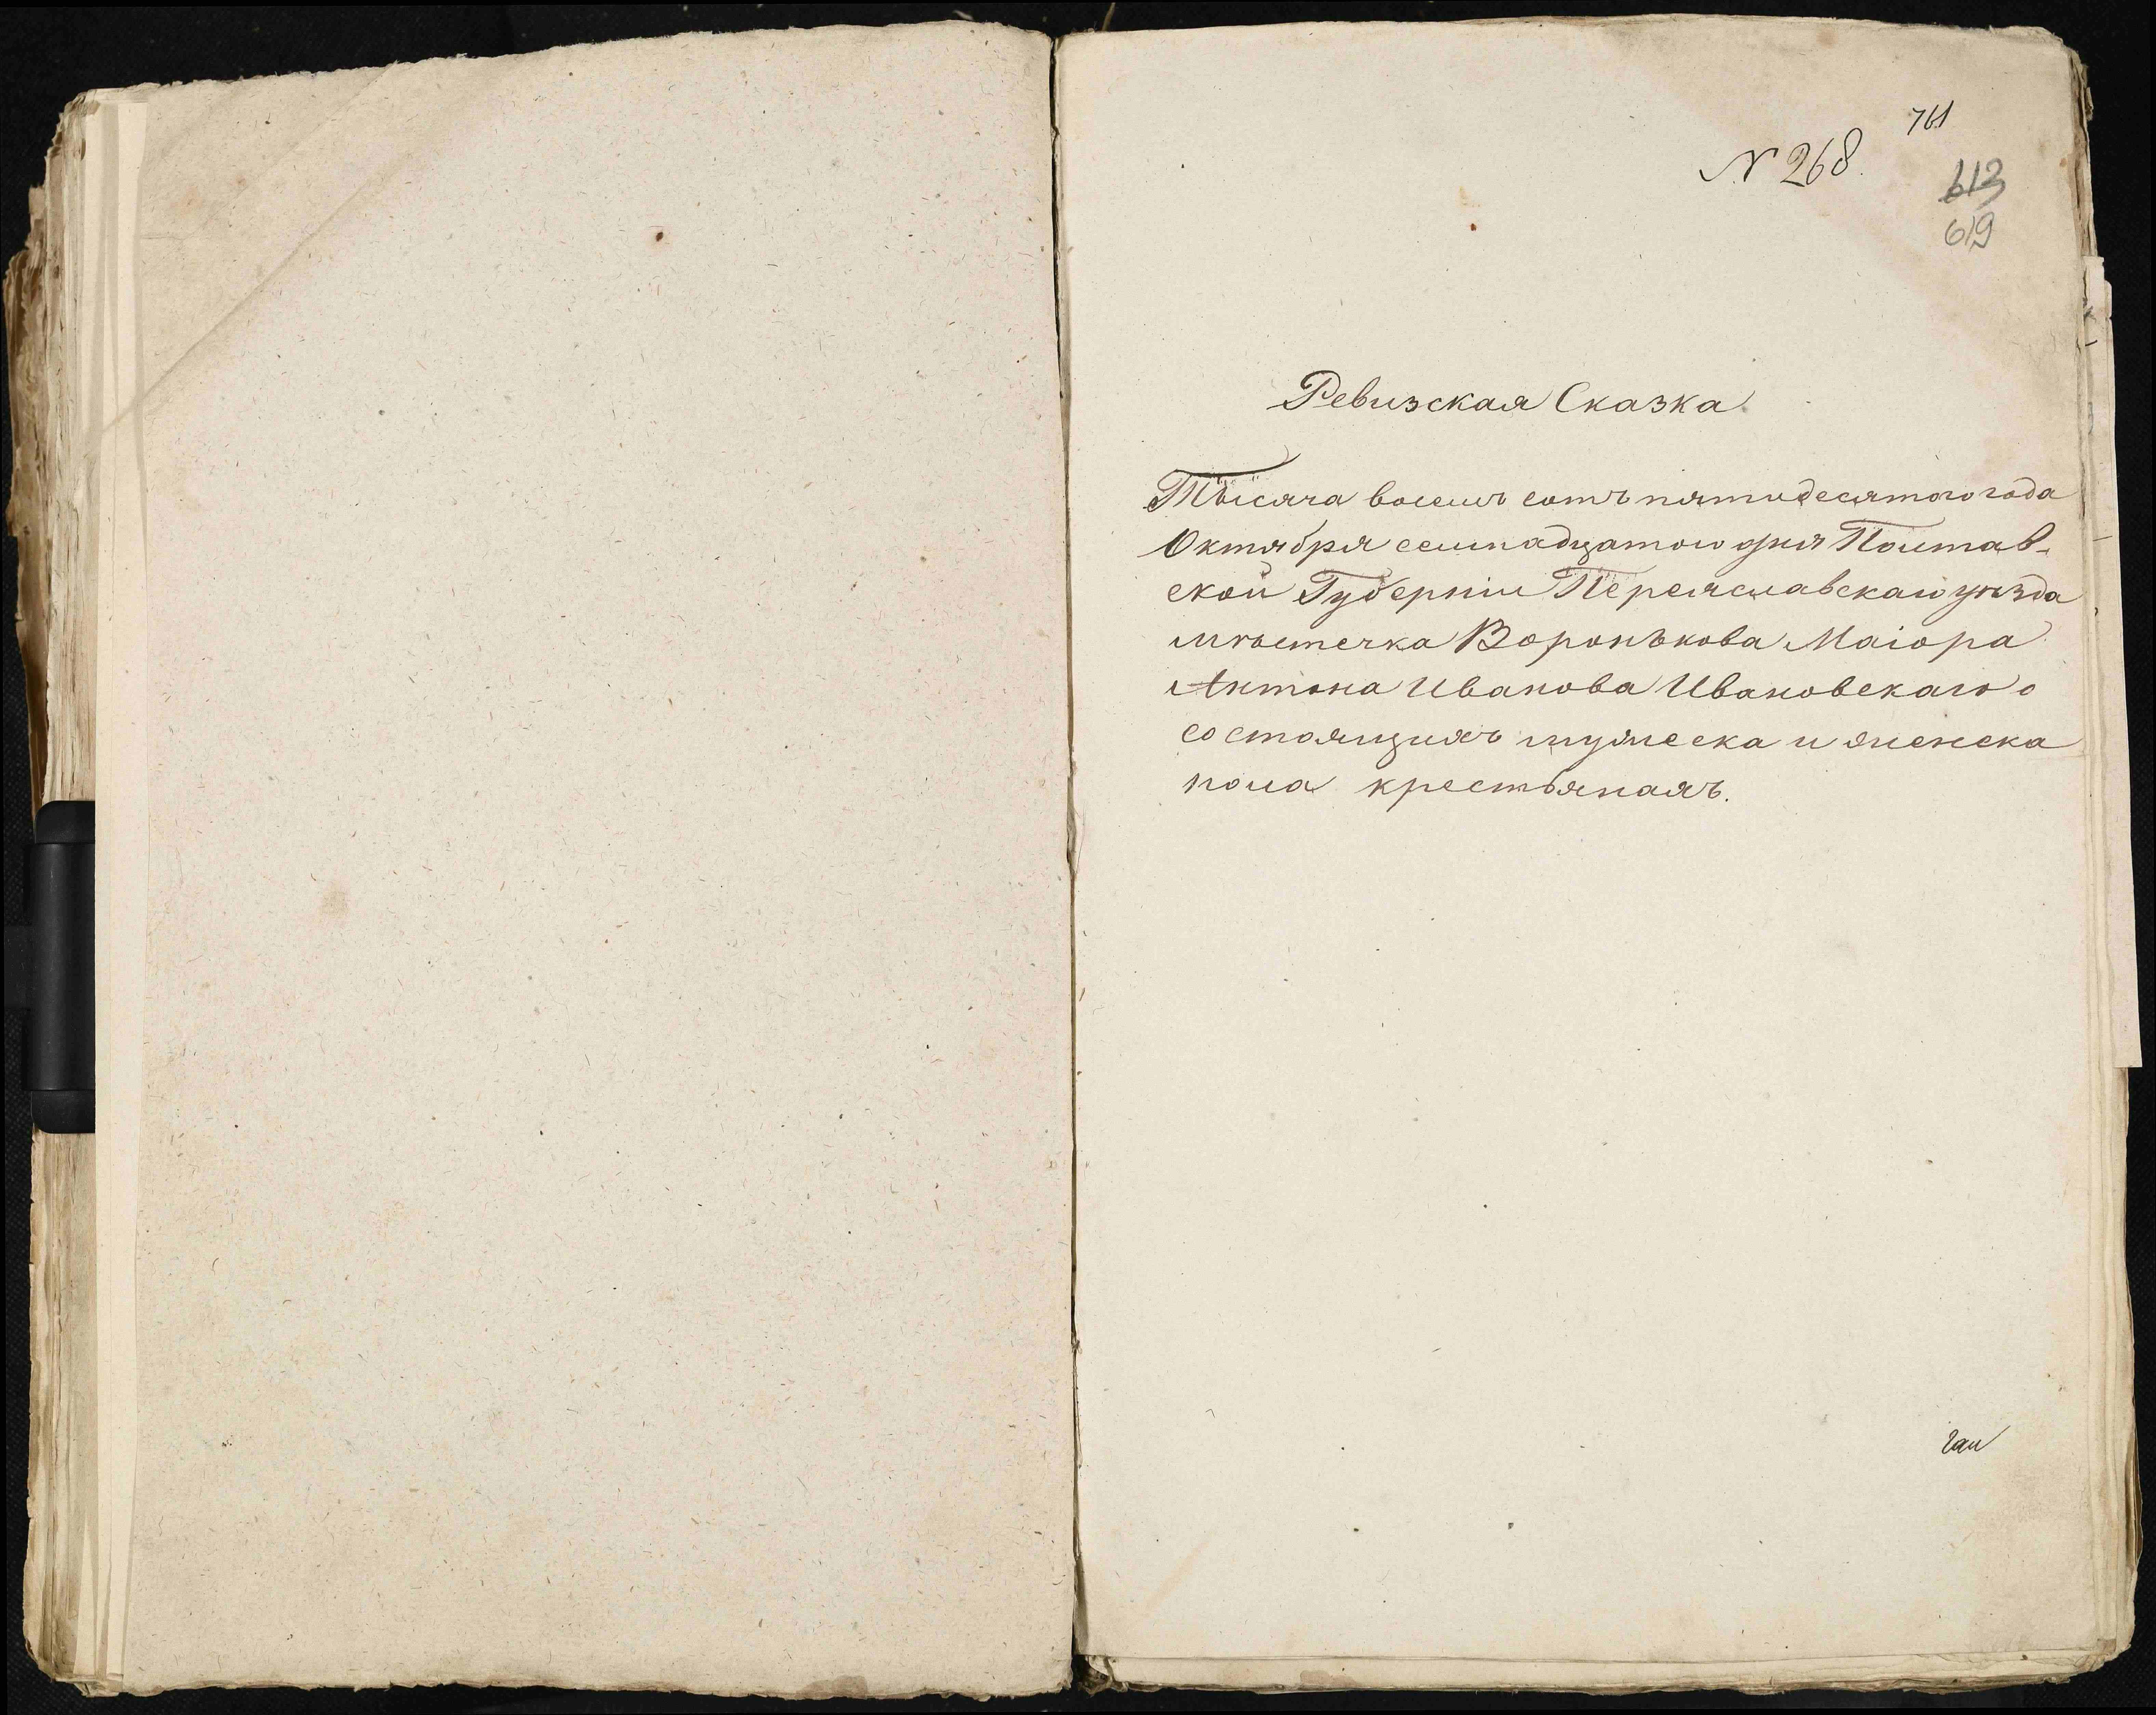 761
№ 268.
613
619
Ревизская Сказка
Тысяча восемь сотъ пятидесятого года
Октября семнадцатого дня Полтав-
ской Губерніи Переяславскаго уѣзда
мѣстечка Воронькова Маіора
Антона Иванова Ивановскаго о
состоящихъ мужеска и женска
пола крестьянахъ.